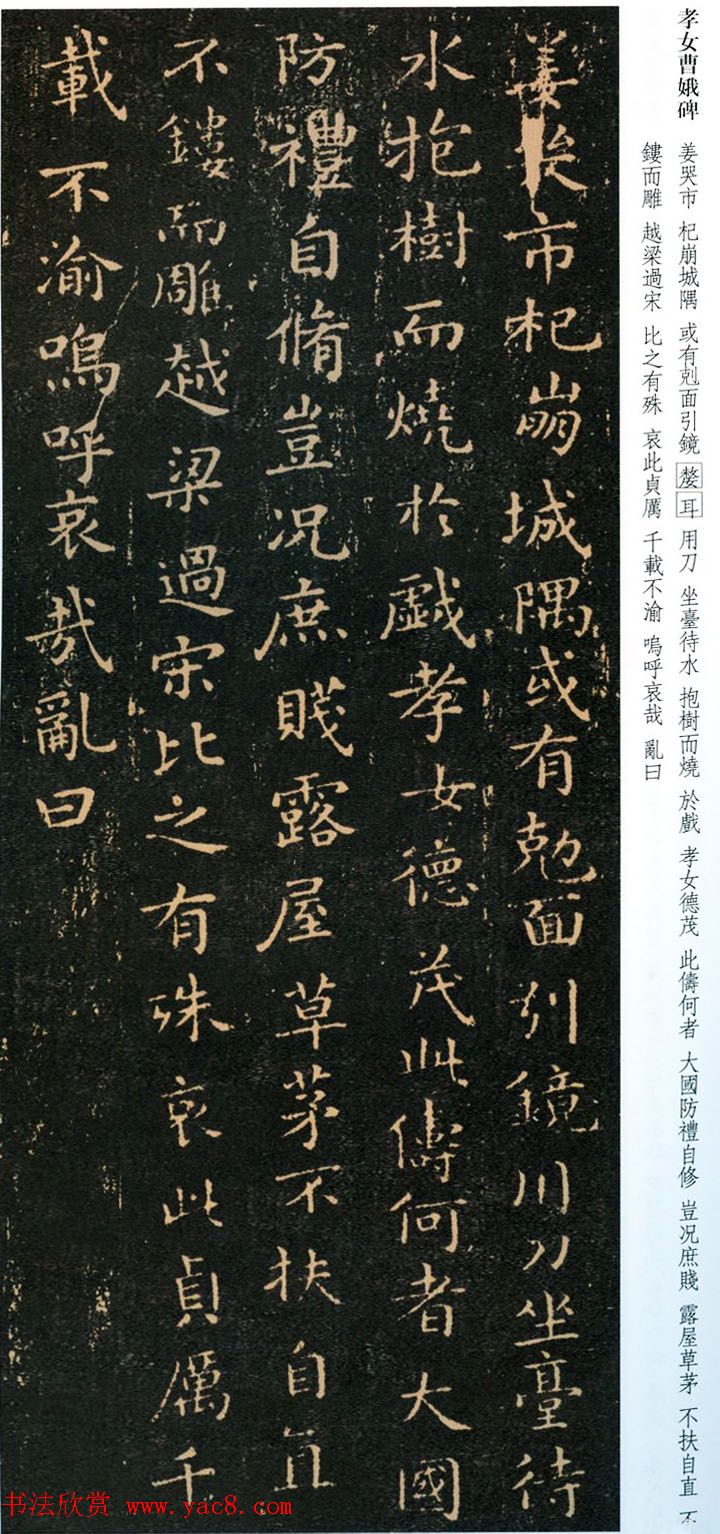 孝女曹娥碑 姜哭市 杞崩城隅 或有剋面引鏡 嫠耳 用刀 坐臺待水 抱樹而燒 於戲 孝女德茂 此儔何者 大國防禮自修 豈况庶賤 露屋草茅 不扶自直 不
鏤而雕 越梁過宋 比之有殊 哀此貞厲 千載不渝 嗚呼哀哉 亂曰
姜哭市杞崩城隅或有剋面引鏡用刀坐臺待
水抱樹而燒於戲孝女德茂此儔何者大國
防禮自脩豈况庶賤露屋草茅不扶自直
不鏤而雕越梁過宋比之有殊哀此貞厲千
載不渝嗚呼哀哉亂曰
书法欣赏 www.yac8.com